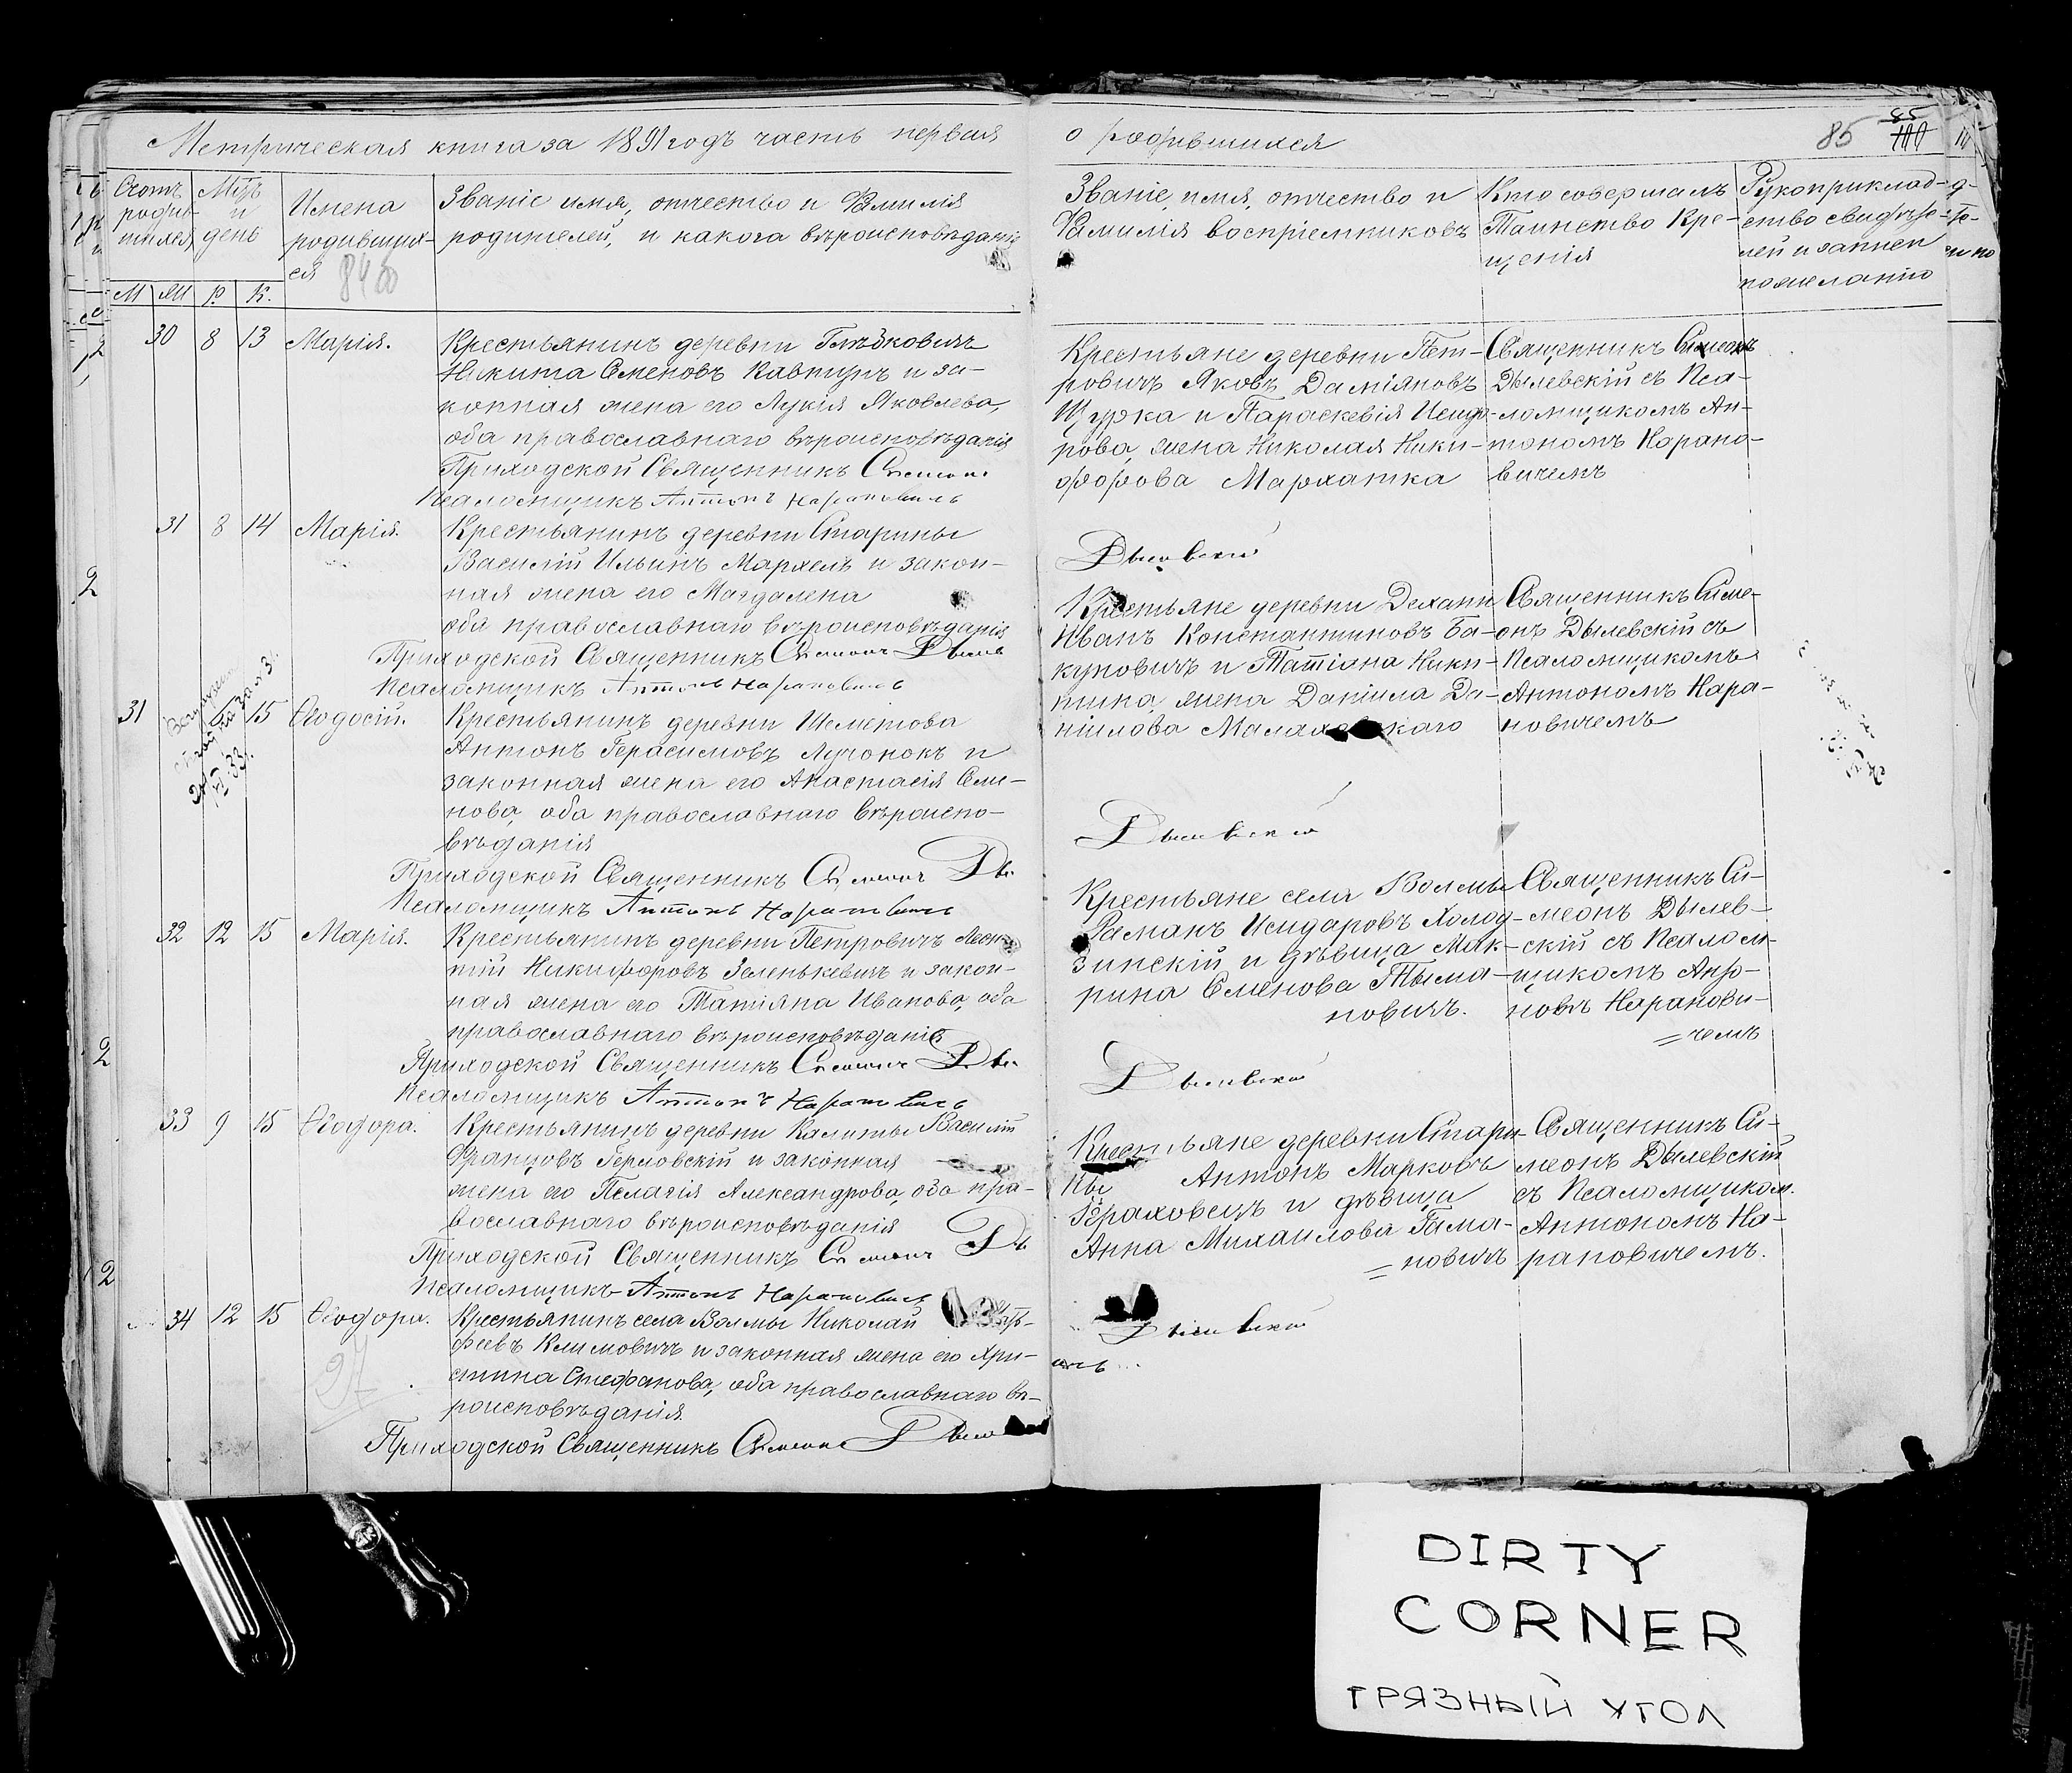 Метрическая книга за 1891 годъ часть первая
о родившихся
85
85
Счотъ родив-шихся
Мцъ и день
Имена родившихся
84 об
Званіе имя, отчество и Фамилія
родителей, и какога вѣроисповѣданія
М М Р. К.
Званіе, имя, отчество и
Фамилія воспріемниковъ
Кто совершалъ
Таинство Кре-
щенія
Рукоприклад-
ство свидѣте-
лей и записи
по желанію
30 8 13 Марія.
Крестьянинъ деревни
Никита Семеновъ Кавтунъ и за-
конная жена его Лукія Яковлева,
оба православнаго вѣроисповѣданія
Приходской Священникъ Симеонъ
Псаломщикъ Антонъ Нарановичь
Крестьяне деревни Пет-
ровичъ Яковъ Даміяновъ
Щурка и Параскевія Исидо-
рова, жена Николая Ники-
форова Мархатка
Священникъ Симеонъ
Дылевскій съ Пса-
ломщикомъ Ан-
тономъ Нарано-
вичемъ
Дылевскій
31 8 14 Марія.
Крестьянинъ деревни Старины
Василій Ильинъ Мархель и закон-
ная жена его Магдалена
оба православнаго вѣроисповѣданія
Приходской Священникъ Симеонъ Дыле
Псаломщикъ Антонъ Нарановичь
Крестьяне деревни Дехани
Иванъ Константиновъ Ба-
куновичъ и Татіана Ники-
тина, жена Даніила Да-
ніилова Малаховскаго
Священникъ Симе-
онъ Дылевскій съ
Псаломщикомъ
Антономъ Нара-
новичемъ
Дылевскій
31 15 Ѳеодосій.
Крестьянинъ деревни Шеметова
Антонъ Герасимовъ Лучонокъ и
законная жена его Анастасія Семе-
нова, оба православнаго вѣроиспо-
вѣданія
Приходской Священникъ Симеонъ Ды
Псаломщикъ Антонъ Нарановичь
Крестьяне села Волмы
Раманъ Исидаровъ Холод-
зинскій и дѣвица Мак-
рина Семенова Тыма-
новичъ.
Священникъ Си-
меонъ Дылев-
скій съ Псалом-
щикомъ Анто-
новъ Наранови-
=чемъ
Дылевскій
32 12 15 Марія.
Крестьянинъ деревни Петровичъ Леон-
тій Никифоровъ Зеленькевичъ и закон-
ная жена его Татіяна Иванова, оба
православнаго вѣроисповѣданія
Приходской Священникъ Симеонъ Ды
Псаломщикъ Антонъ Нарановичь
Крестьяне деревни Стари-
ны Антонъ Марковъ
Гераховецъ и дѣвица
Анна Михаилова Гама-
=новичъ
Священникъ Си-
меонъ Дылевскій
съ Псаломщиком.
Антономъ На-
рановичемъ.
Дылевскій
33 9 15 Ѳеодора.
Крестьянинъ деревни Калиты Василій
Францовъ Герловскій и законная
жена его Пелагія Александрова, оба пра-
вославнаго вѣроисповѣданія
Приходской Священникъ Симеонъ Ды
Псаломщикъ Антонъ Нарановичь
34 12 15 Ѳеодора.
27
Крестьянинъ села Волмы Николай
феевъ Климовичъ и законная жена его Хри-
стина Стефанова, оба православнаго вѣ-
роисповѣданія.
Приходской Священникъ Симеонъ Дыле
2
2
2
DIRTY
CORNER
ГРЯЗНЫЙ УГОЛ